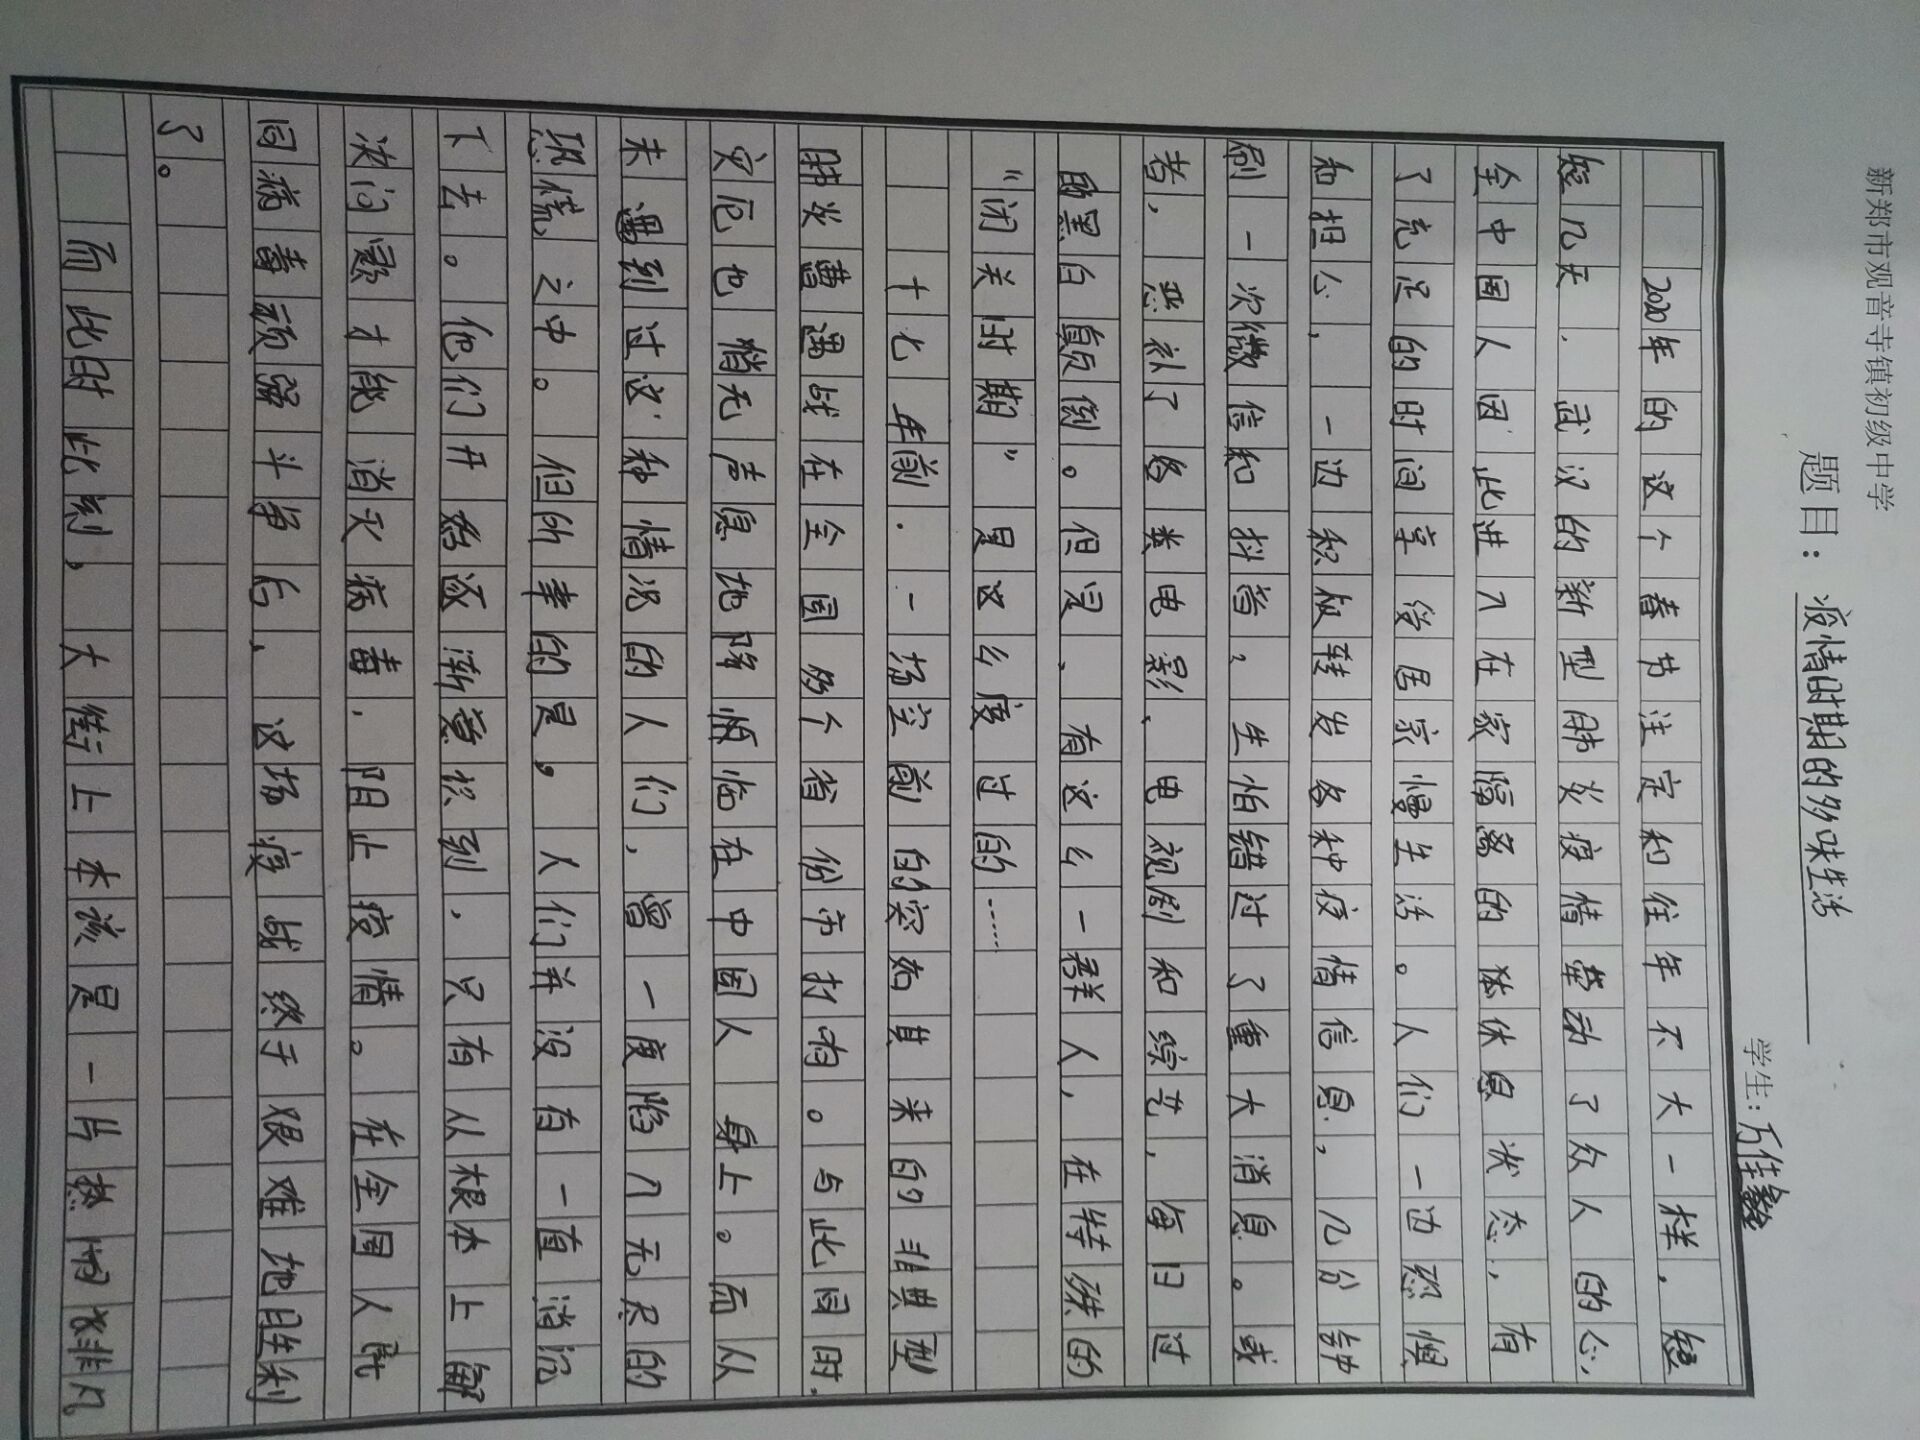 新郑市观音寺镇初级中学
题目：疫情时期的多味生活
学生：万佳
2020年的这个春节注定和往年不大一样，短
短几天，武汉的新型肺炎疫情牵动了众人的心，
全中国人因此进入在家隔离的休息状态，有
了充足的时间享份居家慢生活。人们一边恐惧
和担心，一边积极转发各种疫情信息，几分钟
刷一次微信和抖音，生怕错过了重大消息。或
者，恶补了各类电影、电视剧和综艺，每日过
的黑白颠倒。但是、有这么一群人，在特殊的
“闭关时期”是这么度过的……
十七年前，一场空前的突如其来的非典型
肺炎遭遇战在全国多个省份市打响。与此同时，
灾厄也悄无声息地降临在中国人身上。而从
未遇到过这种情况的人们，曾一度陷入无尽的
恐慌之中。但所幸的是，人们并没有一直消沉
下去。他们开始逐渐意识到，只有从根本上解
决问题才能消灭病毒，阻止疫情。在全国人民
同病毒顽强斗争后，这场疫战终于艰难地胜利
了。
而此时此刻，大街上本该是一片热闹非凡